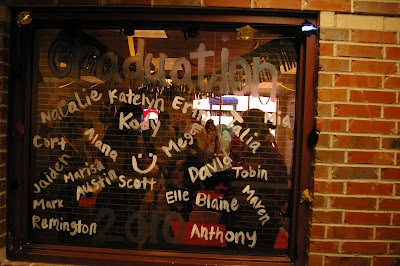 Graduation
Natalie Katelyn Erin Mia
Kody Talia
Cort Alana Megan
Jaiden Marisa David Tobin
Austin Scott
Mark Elle Blaine Maven
Remington 2010 Anthony